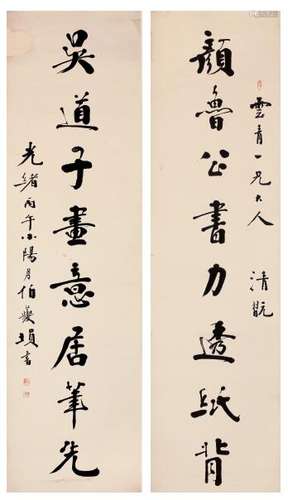 雲青一兄大人 清翫
顔魯公書力透紙背
吳道子畫意居筆先
光緒丙午小陽月伯夔塤書